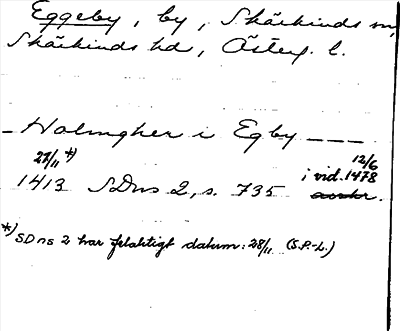 Eggeby, by, Skärkinds sn,
Skärkinds hd, Österg. l.
– Holmgher i Egby – – –
27/11 *) 12/6
1413 SDns 2, s. 735 i vid. 1478
avskr.
*) SDns 2 har felaktigt datum: 28/11 (S.P.-L.)